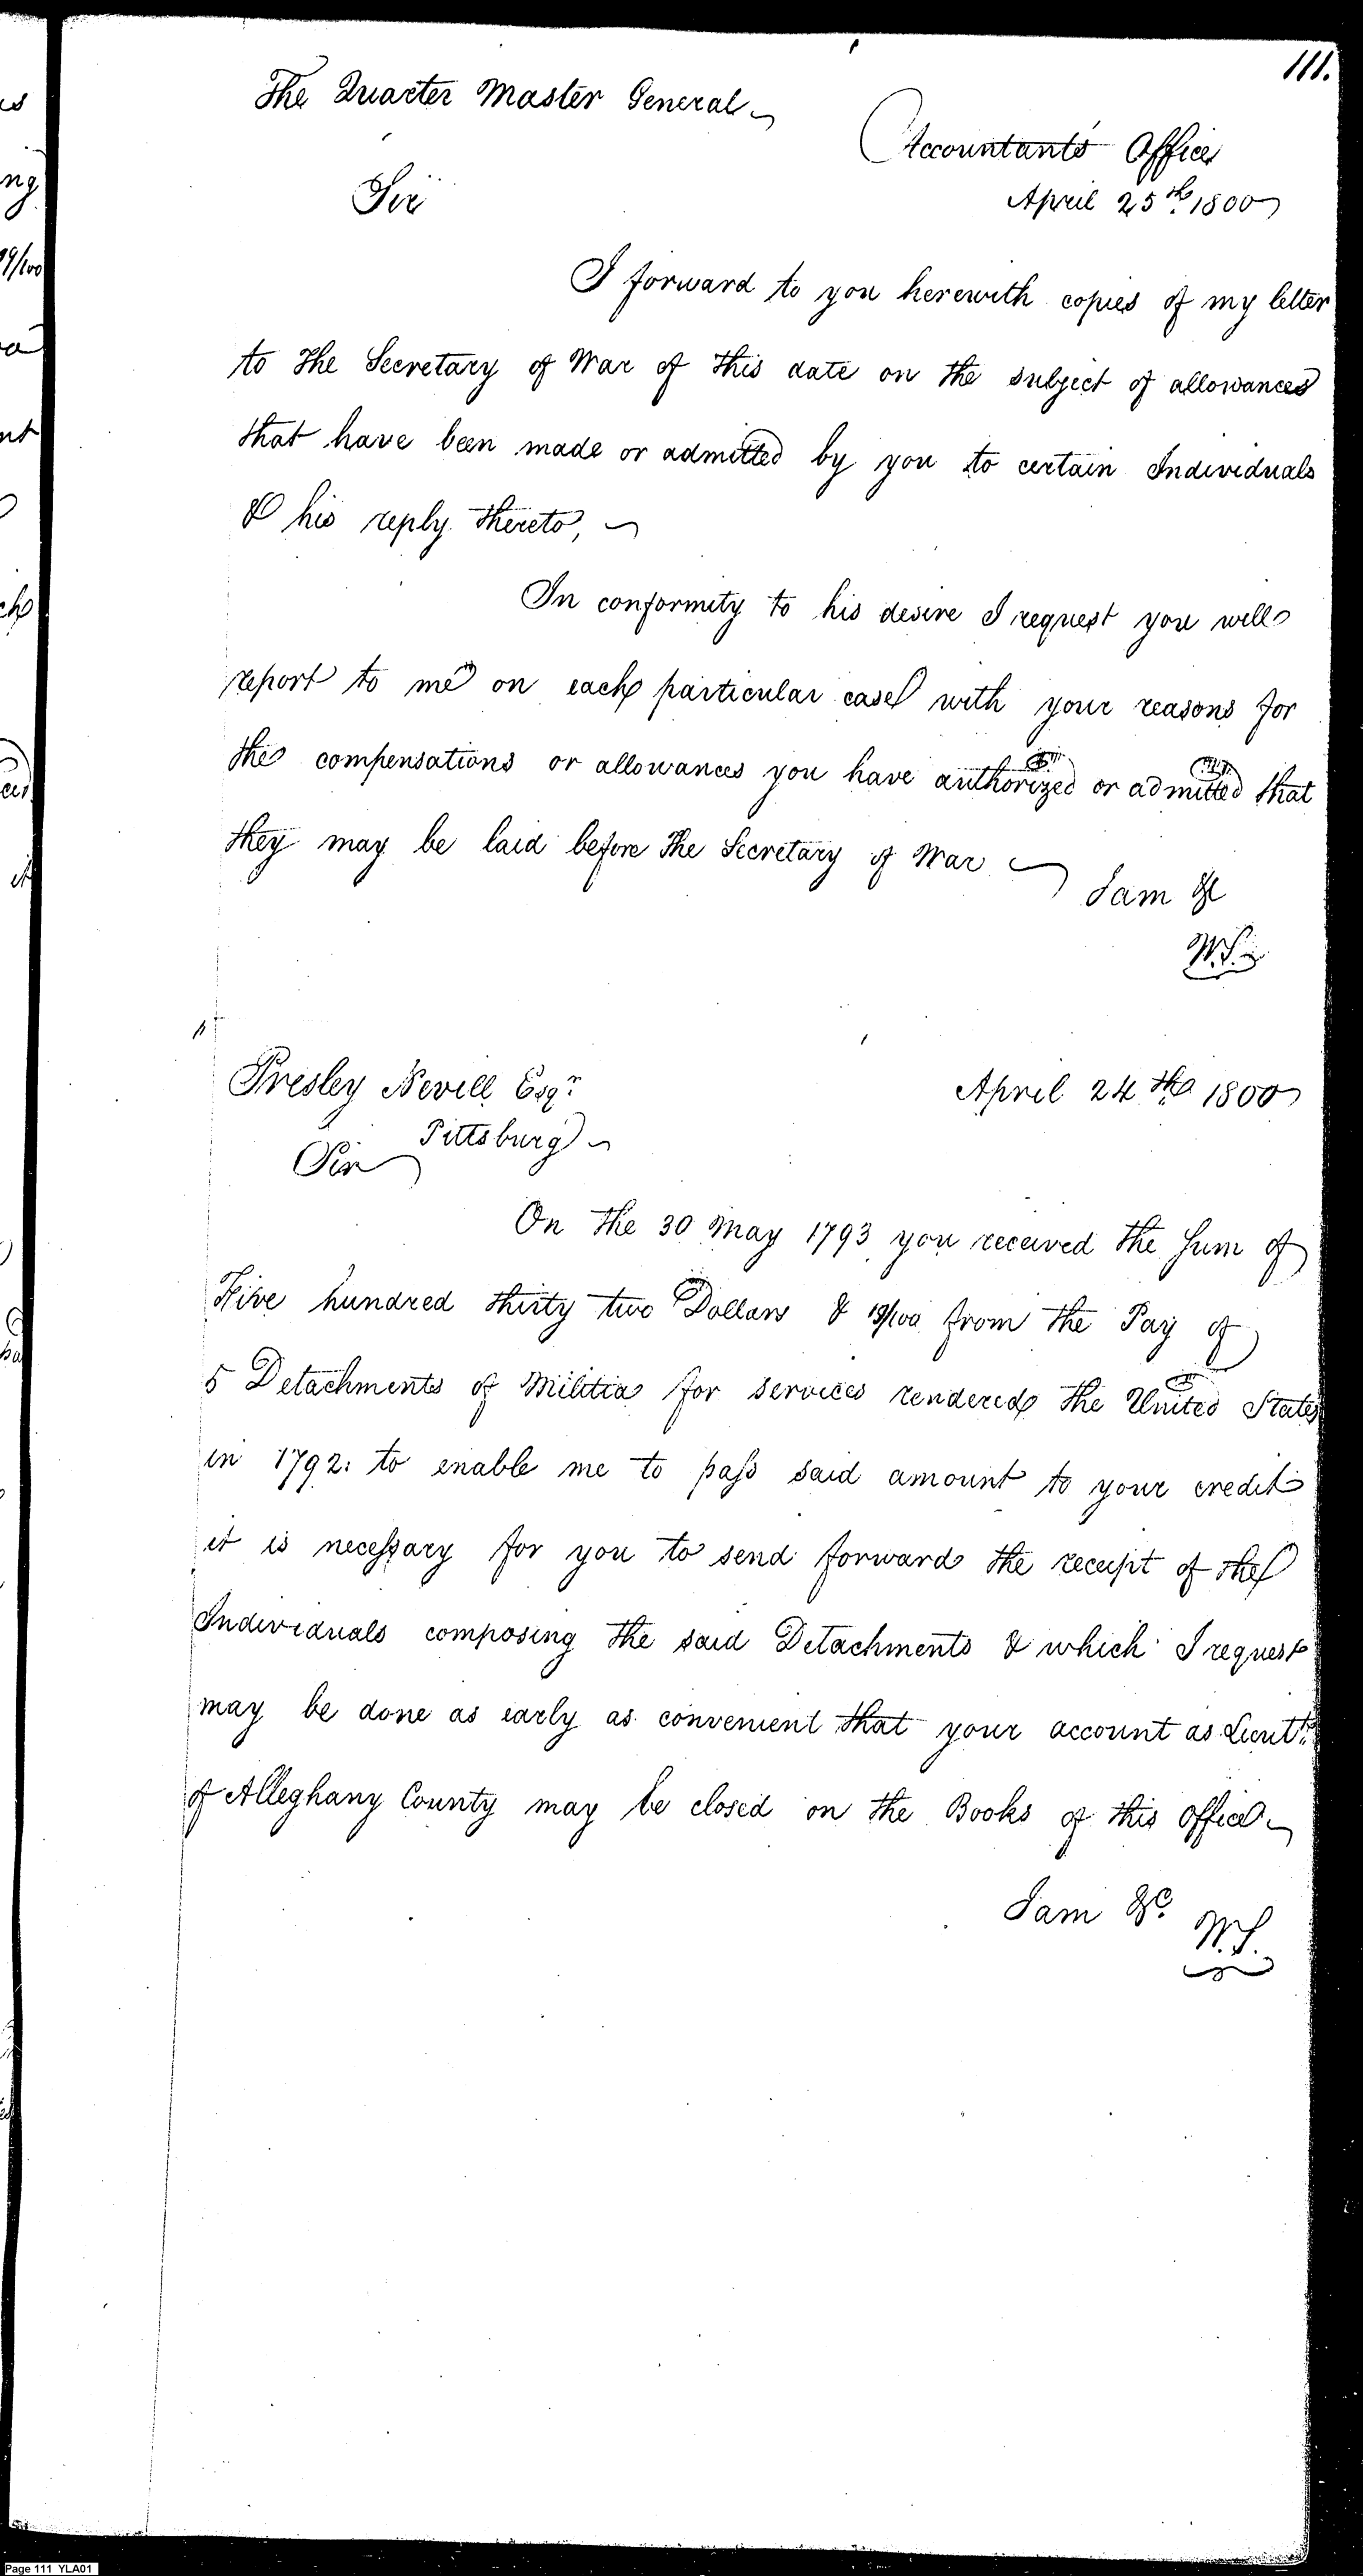 111.
The Quarter Master General
Accountants Office
Sir
April 25th 1800
I forward to you herewith copies of my letter
to the Secretary of War of this date on the subject of allowances
that have been made or admitted by you to certain Individuals
& his reply thereto,
In conformity to his desire I request you will
report to me on each particular case with your reasons for
the compensations or allowances you have authorized or admitted that
they may be laid before the Secretary of War
I am &c
W.S.
Presley Nevill Esqr
April 24th 1800
Pittsburg
Sir
On the 30 May 1793 you received the Sum of
Five hundred thirty two Dollars & 19/100 from the Pay of
5 Detachments of Militia for services rendered the United States
in 1792: to enable me to pass said amount to your credit
it is necessary for you to send forward the receipt of the
Individuals composing the said Detachments & which I request
may be done as early as convenient that your account as Lieutt.
of Alleghany County may be closed on the Books of this office
I am &c.
W.S.
Page 111 YLA01